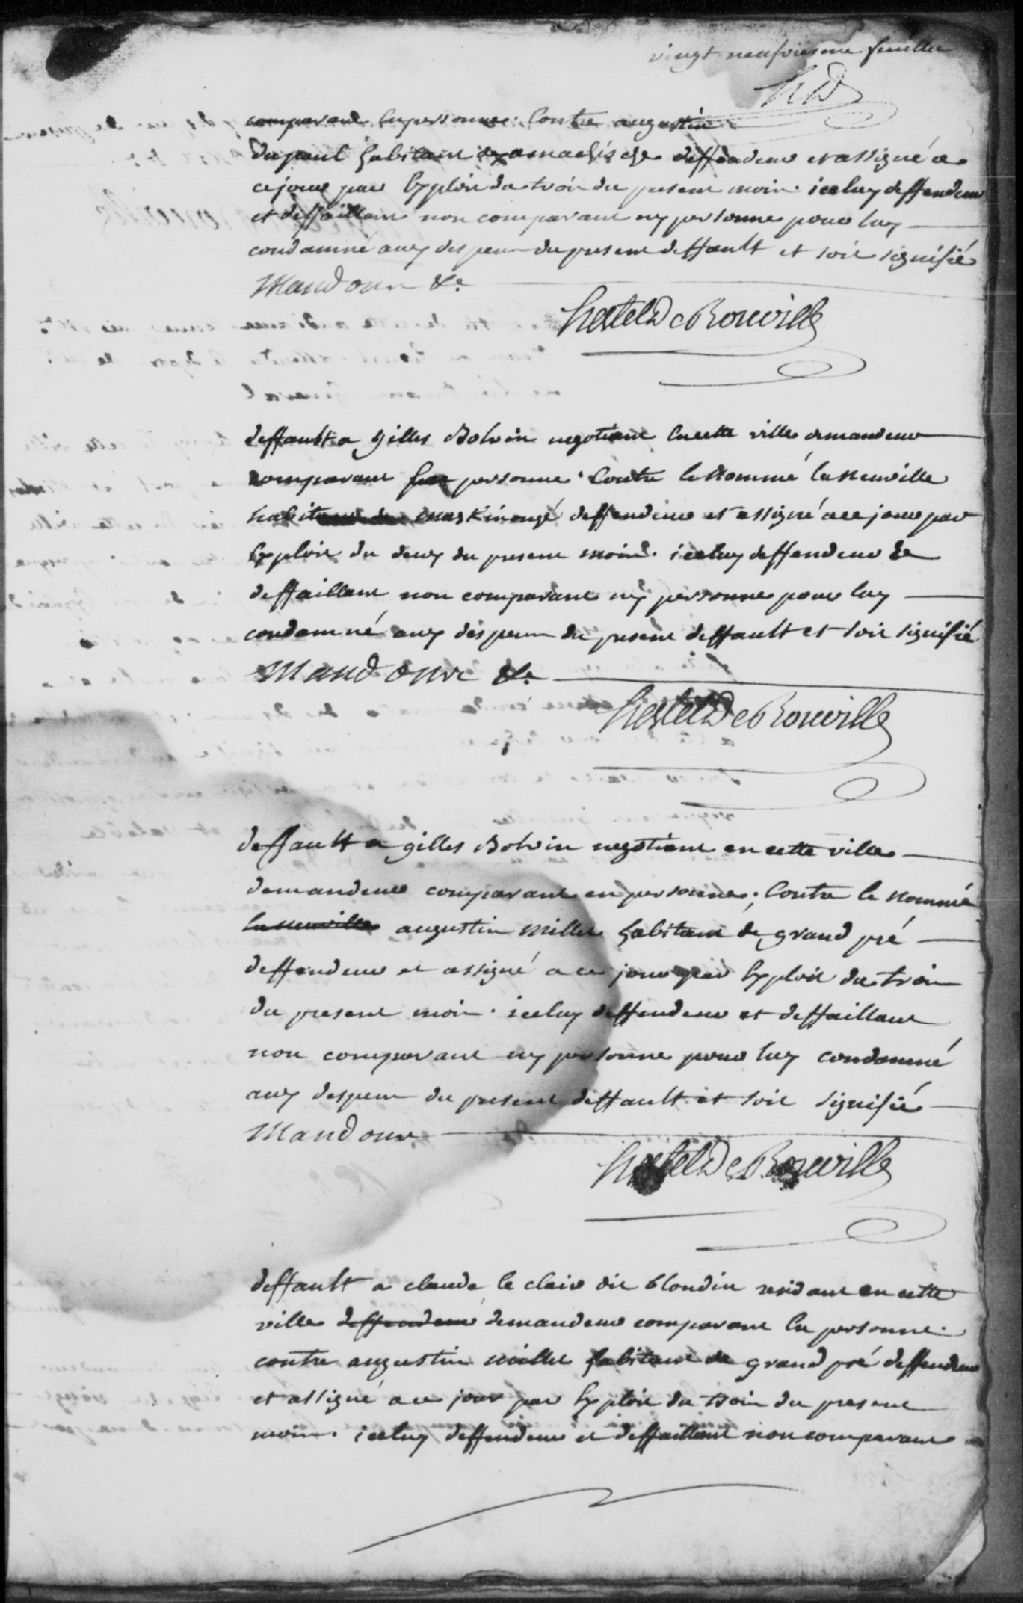 vingt neufviesme feuille
HD
comparant En personne. Contre augustin
Dupaul habitant yamachiche deffendeur et assigné a
ce jour par Exploit du trois du present mois. iceluy deffendeur
et deffaillant non comparant ny personne pour luy
condamné aux despens du present deffault et soit signifié
Mandons &a
Hertel De Rouville
deffault a gilles Bolvin negotiant En cette ville demandeur
comparant En personne. Contre le Nommé laneuville
habitant de maskinongé deffendeur et assigné a ce jour par
Exploit du deux du present mois. iceluy deffendeur &
deffaillant non comparant ny personne pour luy
condamné aux despens du present deffault et soit signifié
Mandons &a
Hertel De Rouville
deffault a gilles Bolvin negotiant en cette ville
demandeur comparant en personne, Contre le nommé
laneuville augustin millet habitant de grand pré
deffendeur et assigné a ce jour par Exploit du trois
du present mois. iceluy deffendeur et deffaillant
non comparant ny personne pour luy condamné
aux despens du present deffault et soit signifié
Mandons
Hertel De Rouville
deffault a claude le clair dit blondin residant en cette
ville deffendeur demandeur comparant En personne.
contre augustin millet habitant de grand pré deffendeur
et assigné a ce jour par Exploit du trois du present
mois. iceluy deffendeur et deffaillant non comparant